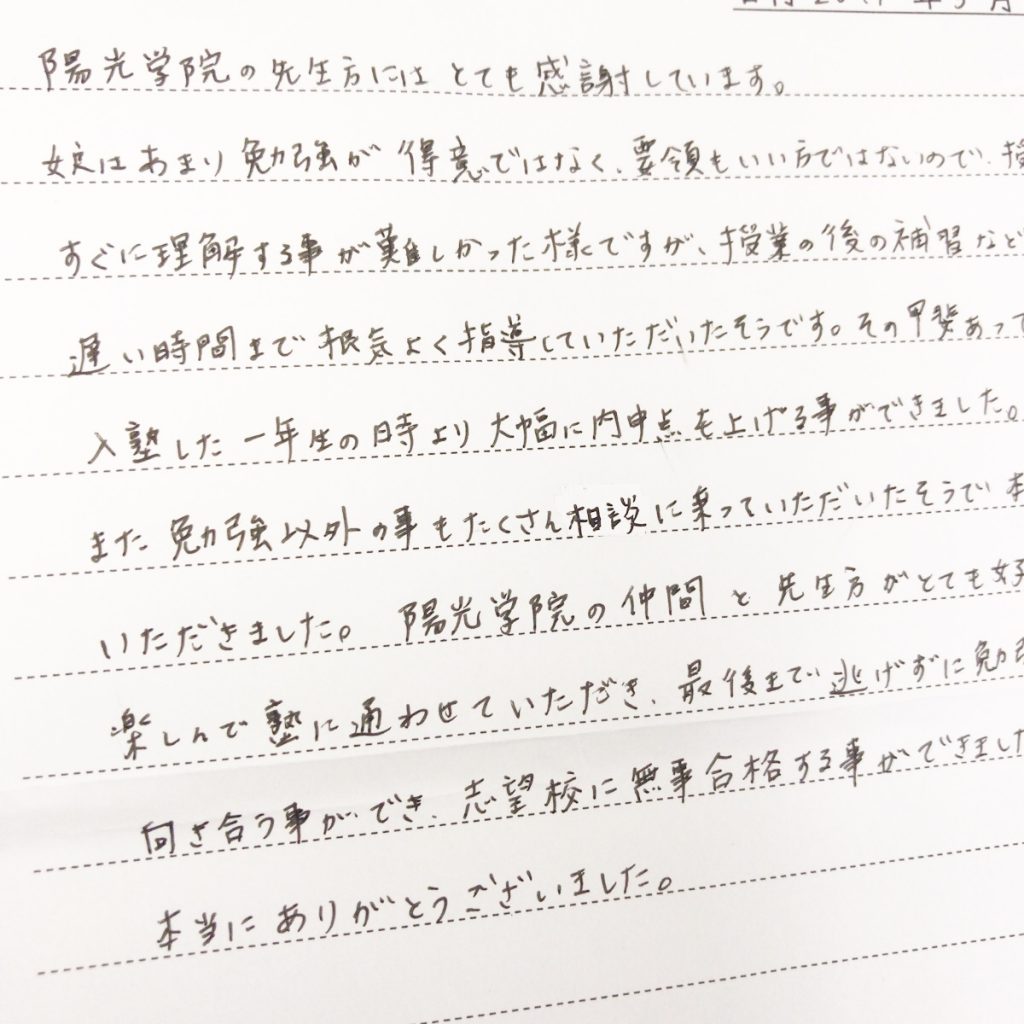 陽光学院の先生方にはとても感謝しています。
娘はあまり勉強が得意ではなく、要領もいい方ではないので、授
すぐに理解する事が難しかった様ですが、授業の後の補習など
遅い時間まで根気よく指導していただいたそうです。その甲斐あって
入塾した一年生の時より大幅に内申点を上げる事ができました。
また勉強以外の事もたくさん相談に乗っていただいたそうで本
いただきました。陽光学院の仲間と先生方がとても好
楽しんで塾に通わせていただき、最後まで逃げずに勉強
向き合う事ができ、志望校に無事合格する事ができました
本当にありがとうございました。